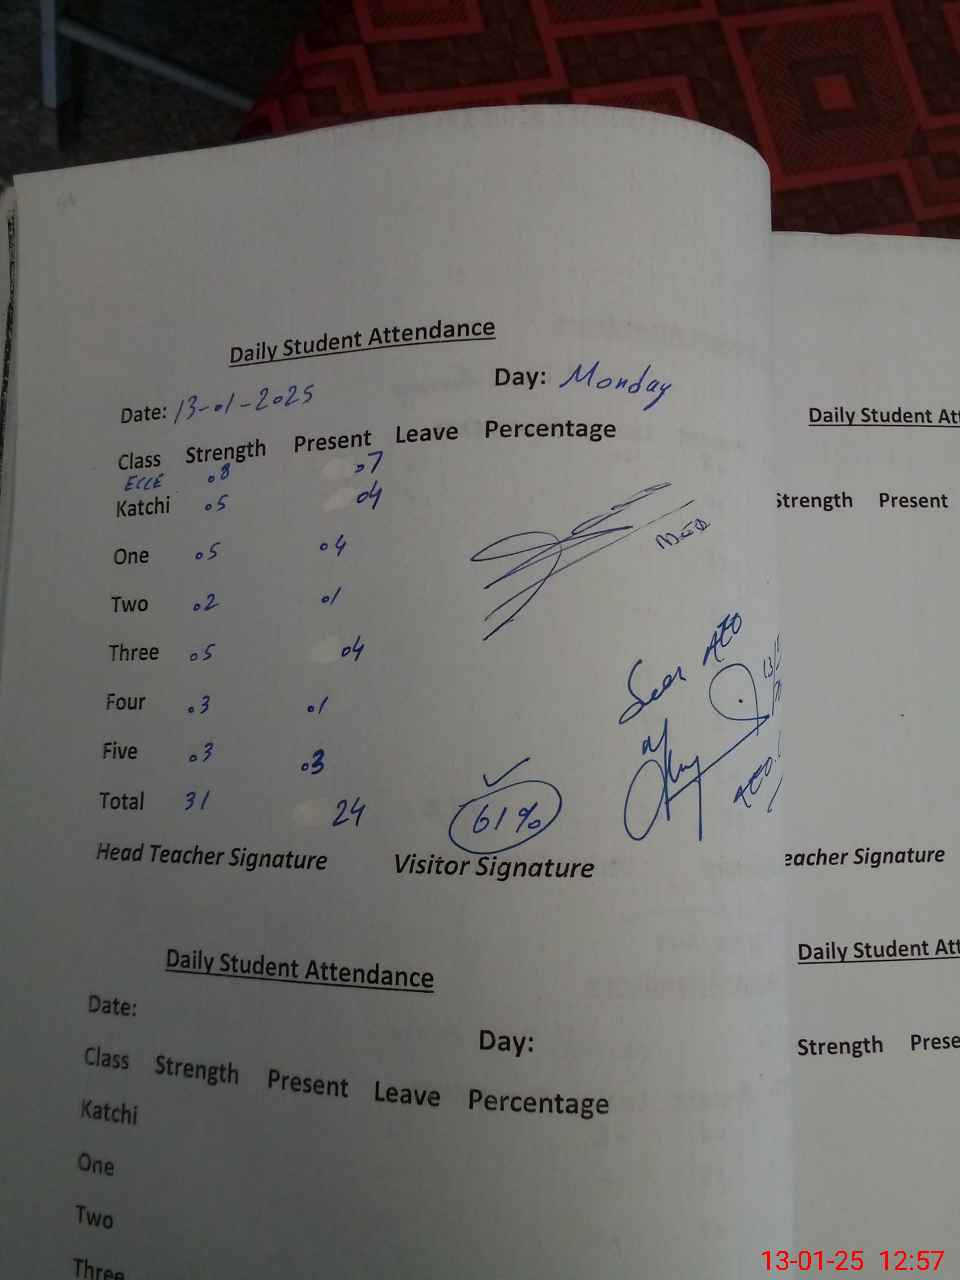 Daily Student Attendance
Day: Monday
Date: 13-01-2025
Class Strength Present Leave Percentage
ECCE 08 07
Katchi 05 04
One 05 04
Two 02 01
Three 05 04
Four 03 01
Five 03 03
Total 31 24 61%
Seen AEO
Head Teacher Signature Visitor Signature
Daily Student Attendance
Date:
Day:
Class Strength Present Leave Percentage
Katchi
One
Two
Three
Daily Student Att
Strength Present
eacher Signature
Daily Student Att
Strength Prese
13-01-25 12:57